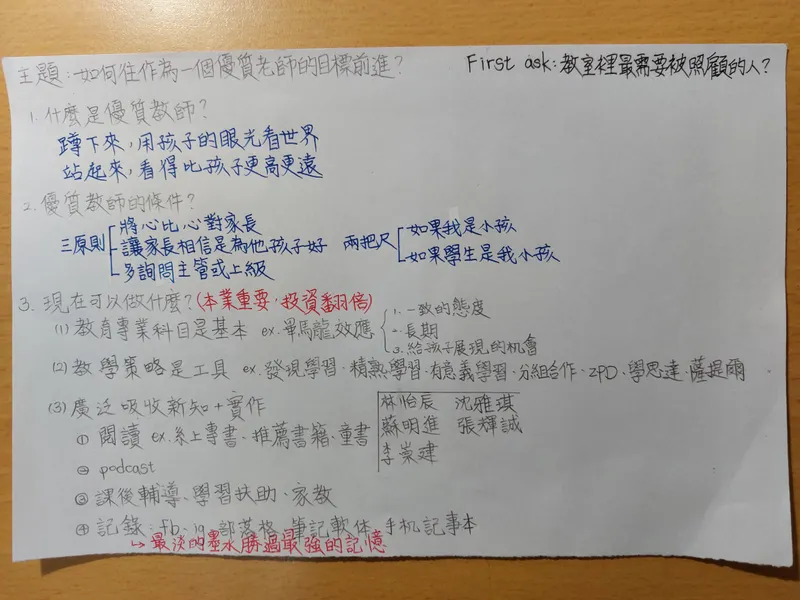 主題:如何往作為一個優質老師的目標前進?
First ask:教室裡最需要被照顧的人?
1. 什麼是優質教師?
蹲下來,用孩子的眼光看世界
站起來,看得比孩子更高更遠
2. 優質教師的條件?
三原則
將心比心對家長
讓家長相信是為他孩子好
多詢問主管或上級
兩把尺
如果我是小孩
如果學生是我小孩
3. 現在可以做什麼?(本業重要,投資翻倍)
(1) 教育專業科目是基本 ex.畢馬龍效應
1. 一致的態度
2. 長期
3. 給孩子展現的機會
(2) 教學策略是工具 ex.發現學習、精熟學習、有意義學習、分組合作、ZPD、學思達、薩提爾
(3) 廣泛吸收新知+實作
林怡辰 沈雅琪
蘇明進 張輝誠
李崇建
① 閱讀 ex.系上專書、推薦書籍、童書
② podcast
③ 課後輔導、學習扶助、家教
④ 記錄:fb、ig、部落格、筆記軟体、手机記事本
↳ 最淡的墨水勝過最強的記憶